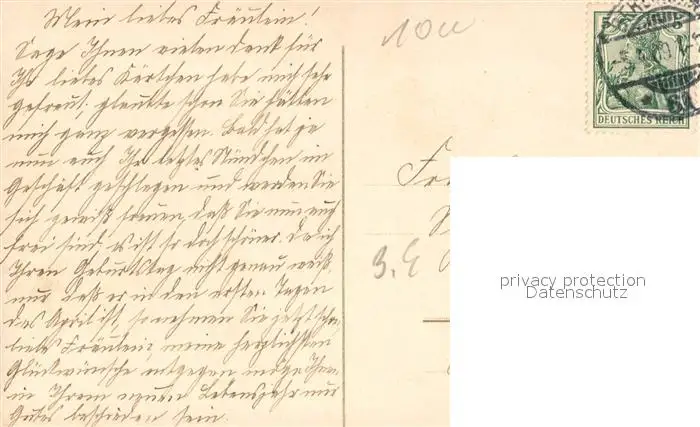 Mein liebes Fräulein!
Sage Ihnen vielen Dank für
Ihr liebes Kärtchen habe mich sehr
gefreut, glaubte schon Sie hätten
mich ganz vergessen. Bald hat ja
nun auch Ihr letztes Stündchen im
Geschäft geschlagen und werden Sie
sich gewiß freuen, daß Sie nun auch
frei sind, es ist so doch schöner. Da ich
Ihren Geburtstag nicht genau weiß,
nur daß er in den ersten Tagen
des April ist, so nehmen Sie jetzt schon,
liebes Fräulein, meine herzlichsten
Glückwünsche entgegen möge Ihnen
in Ihrem neuen Lebensjahr nur
Gutes beschieden sein.
DEUTSCHES REICH
privacy protection
Datenschutz